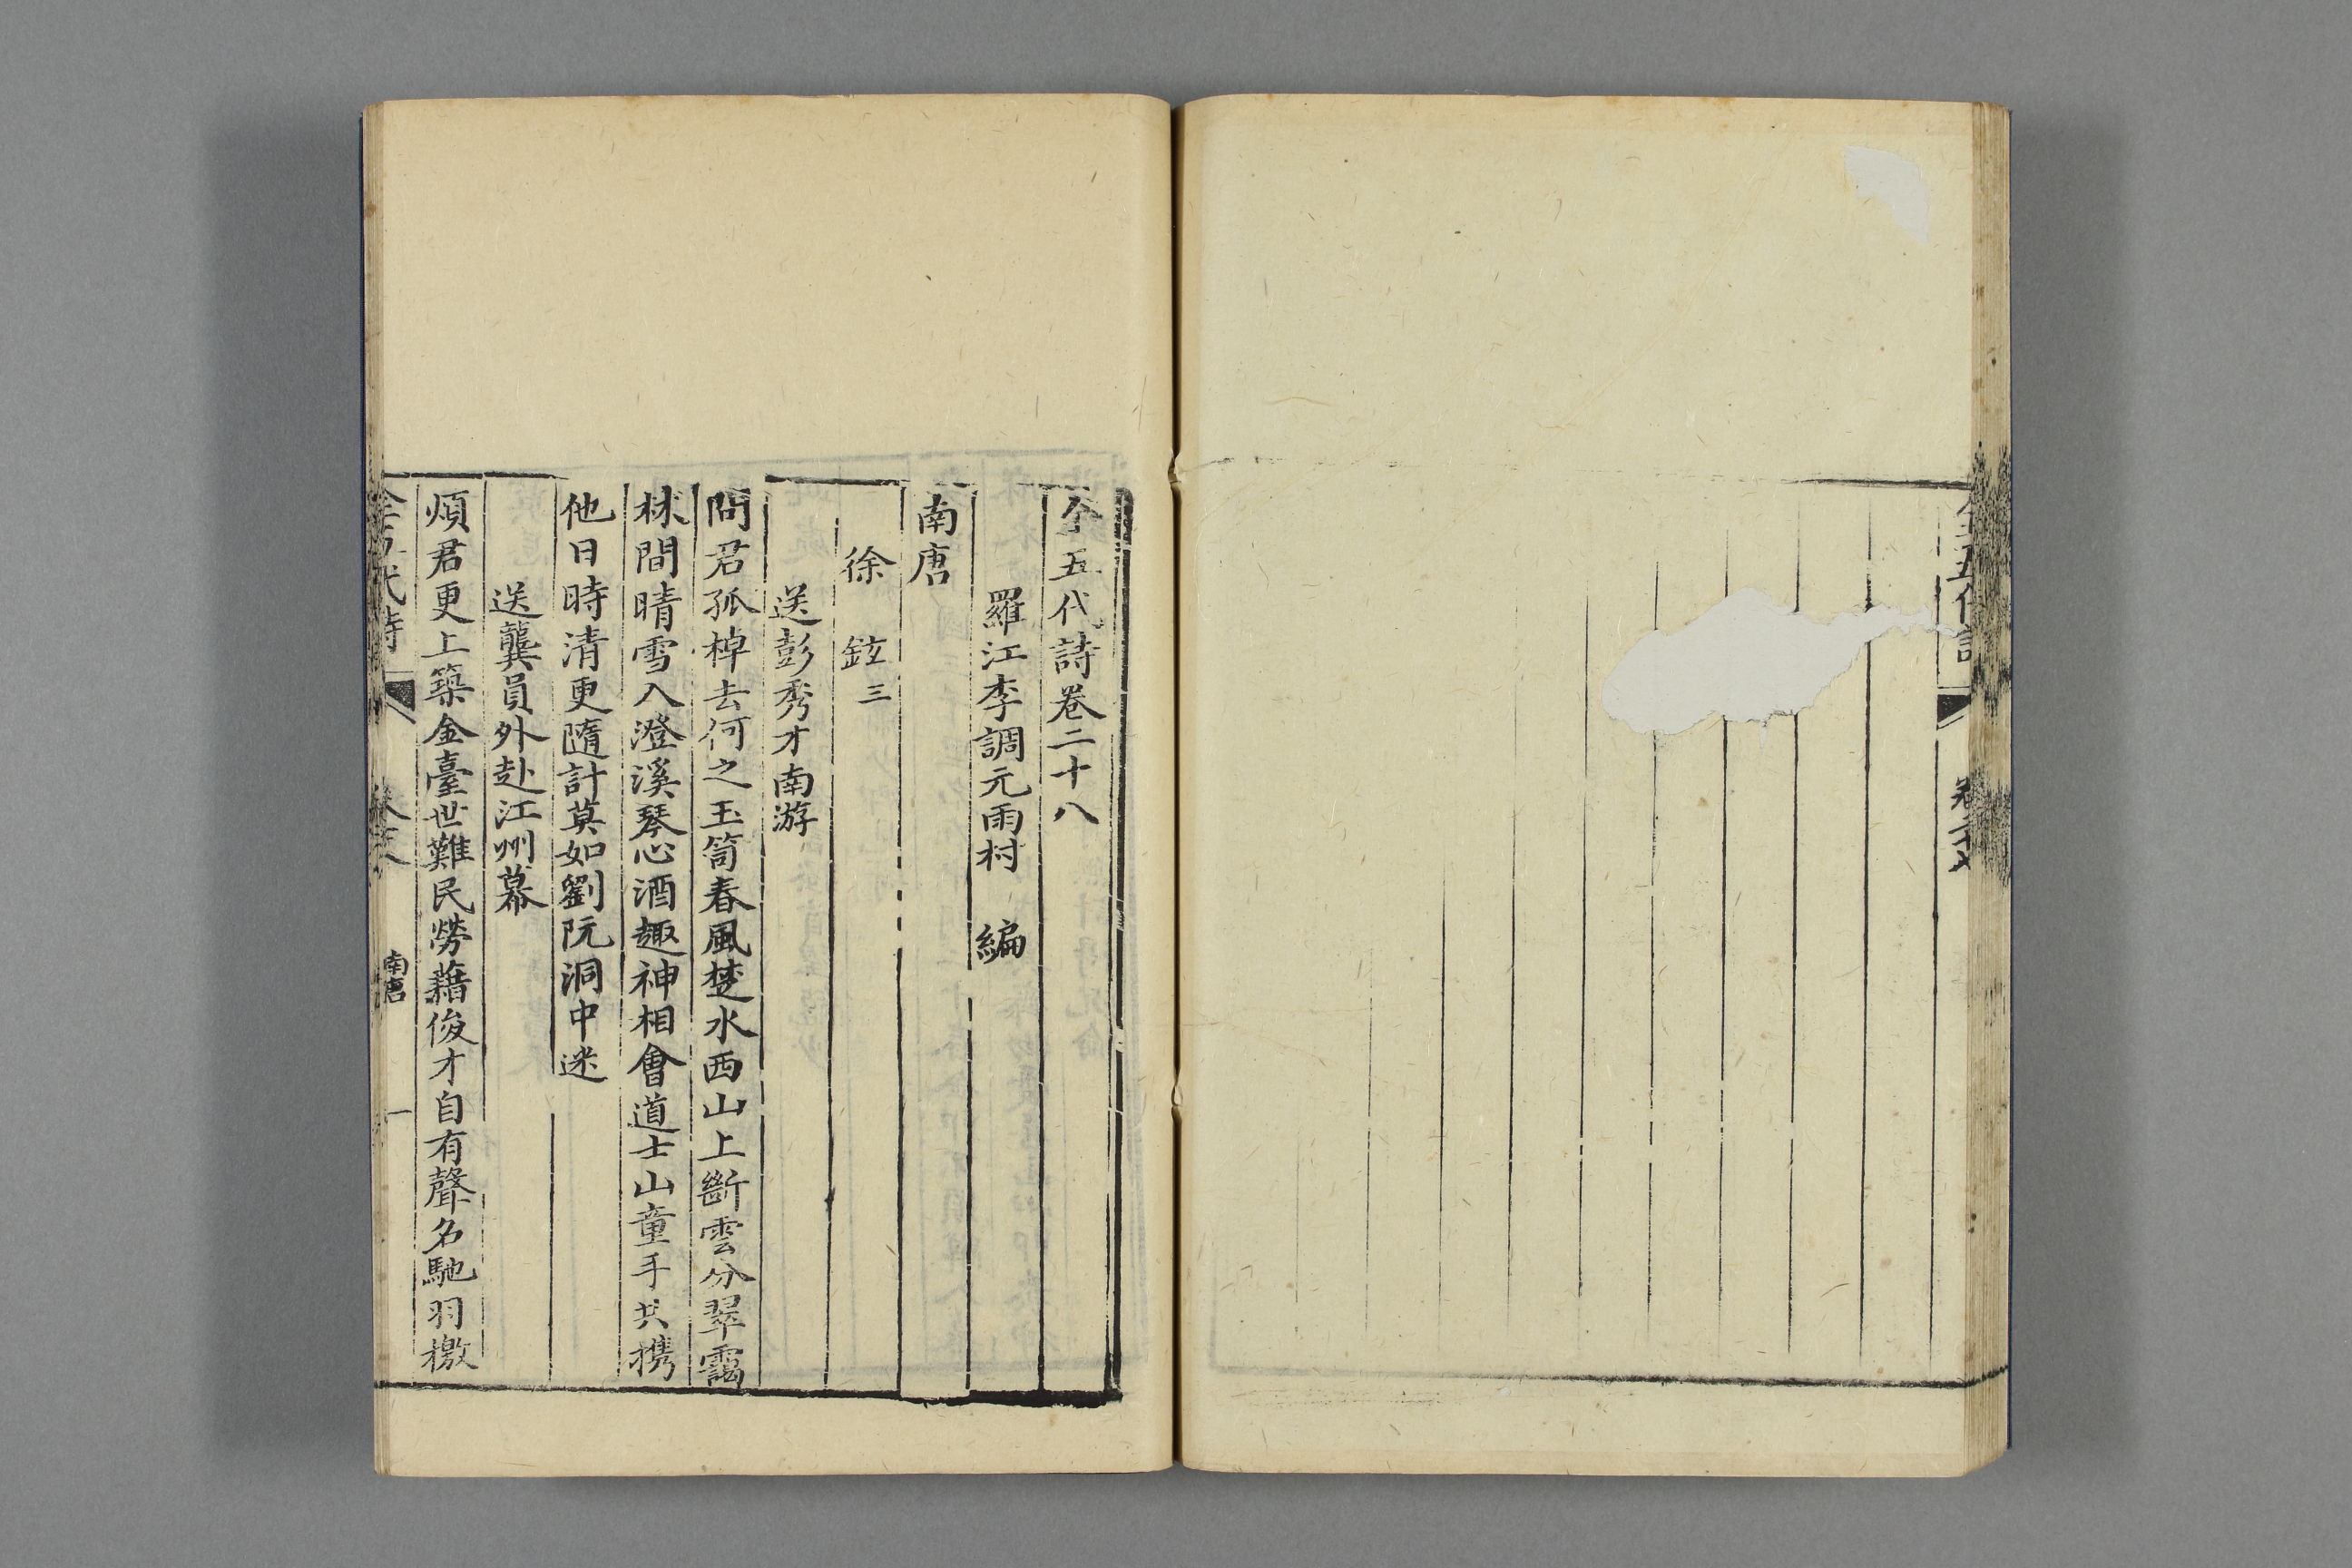 全五代詩
卷二十七
全五代詩卷二十八
羅江李調元雨村 編
南唐
徐鉉三
送彭秀才南游
問君孤棹去何之玉笥春風楚水西山上斷雲分翠靄
林間晴雪入澄溪琴心酒趣神相會道士山童手共携
他日時清更隨計莫如劉阮洞中迷
送龔員外赴江州幕
煩君更上築金臺世難民勞藉俊才自有聲名馳羽檄
全五代詩
卷二十八
南唐
一